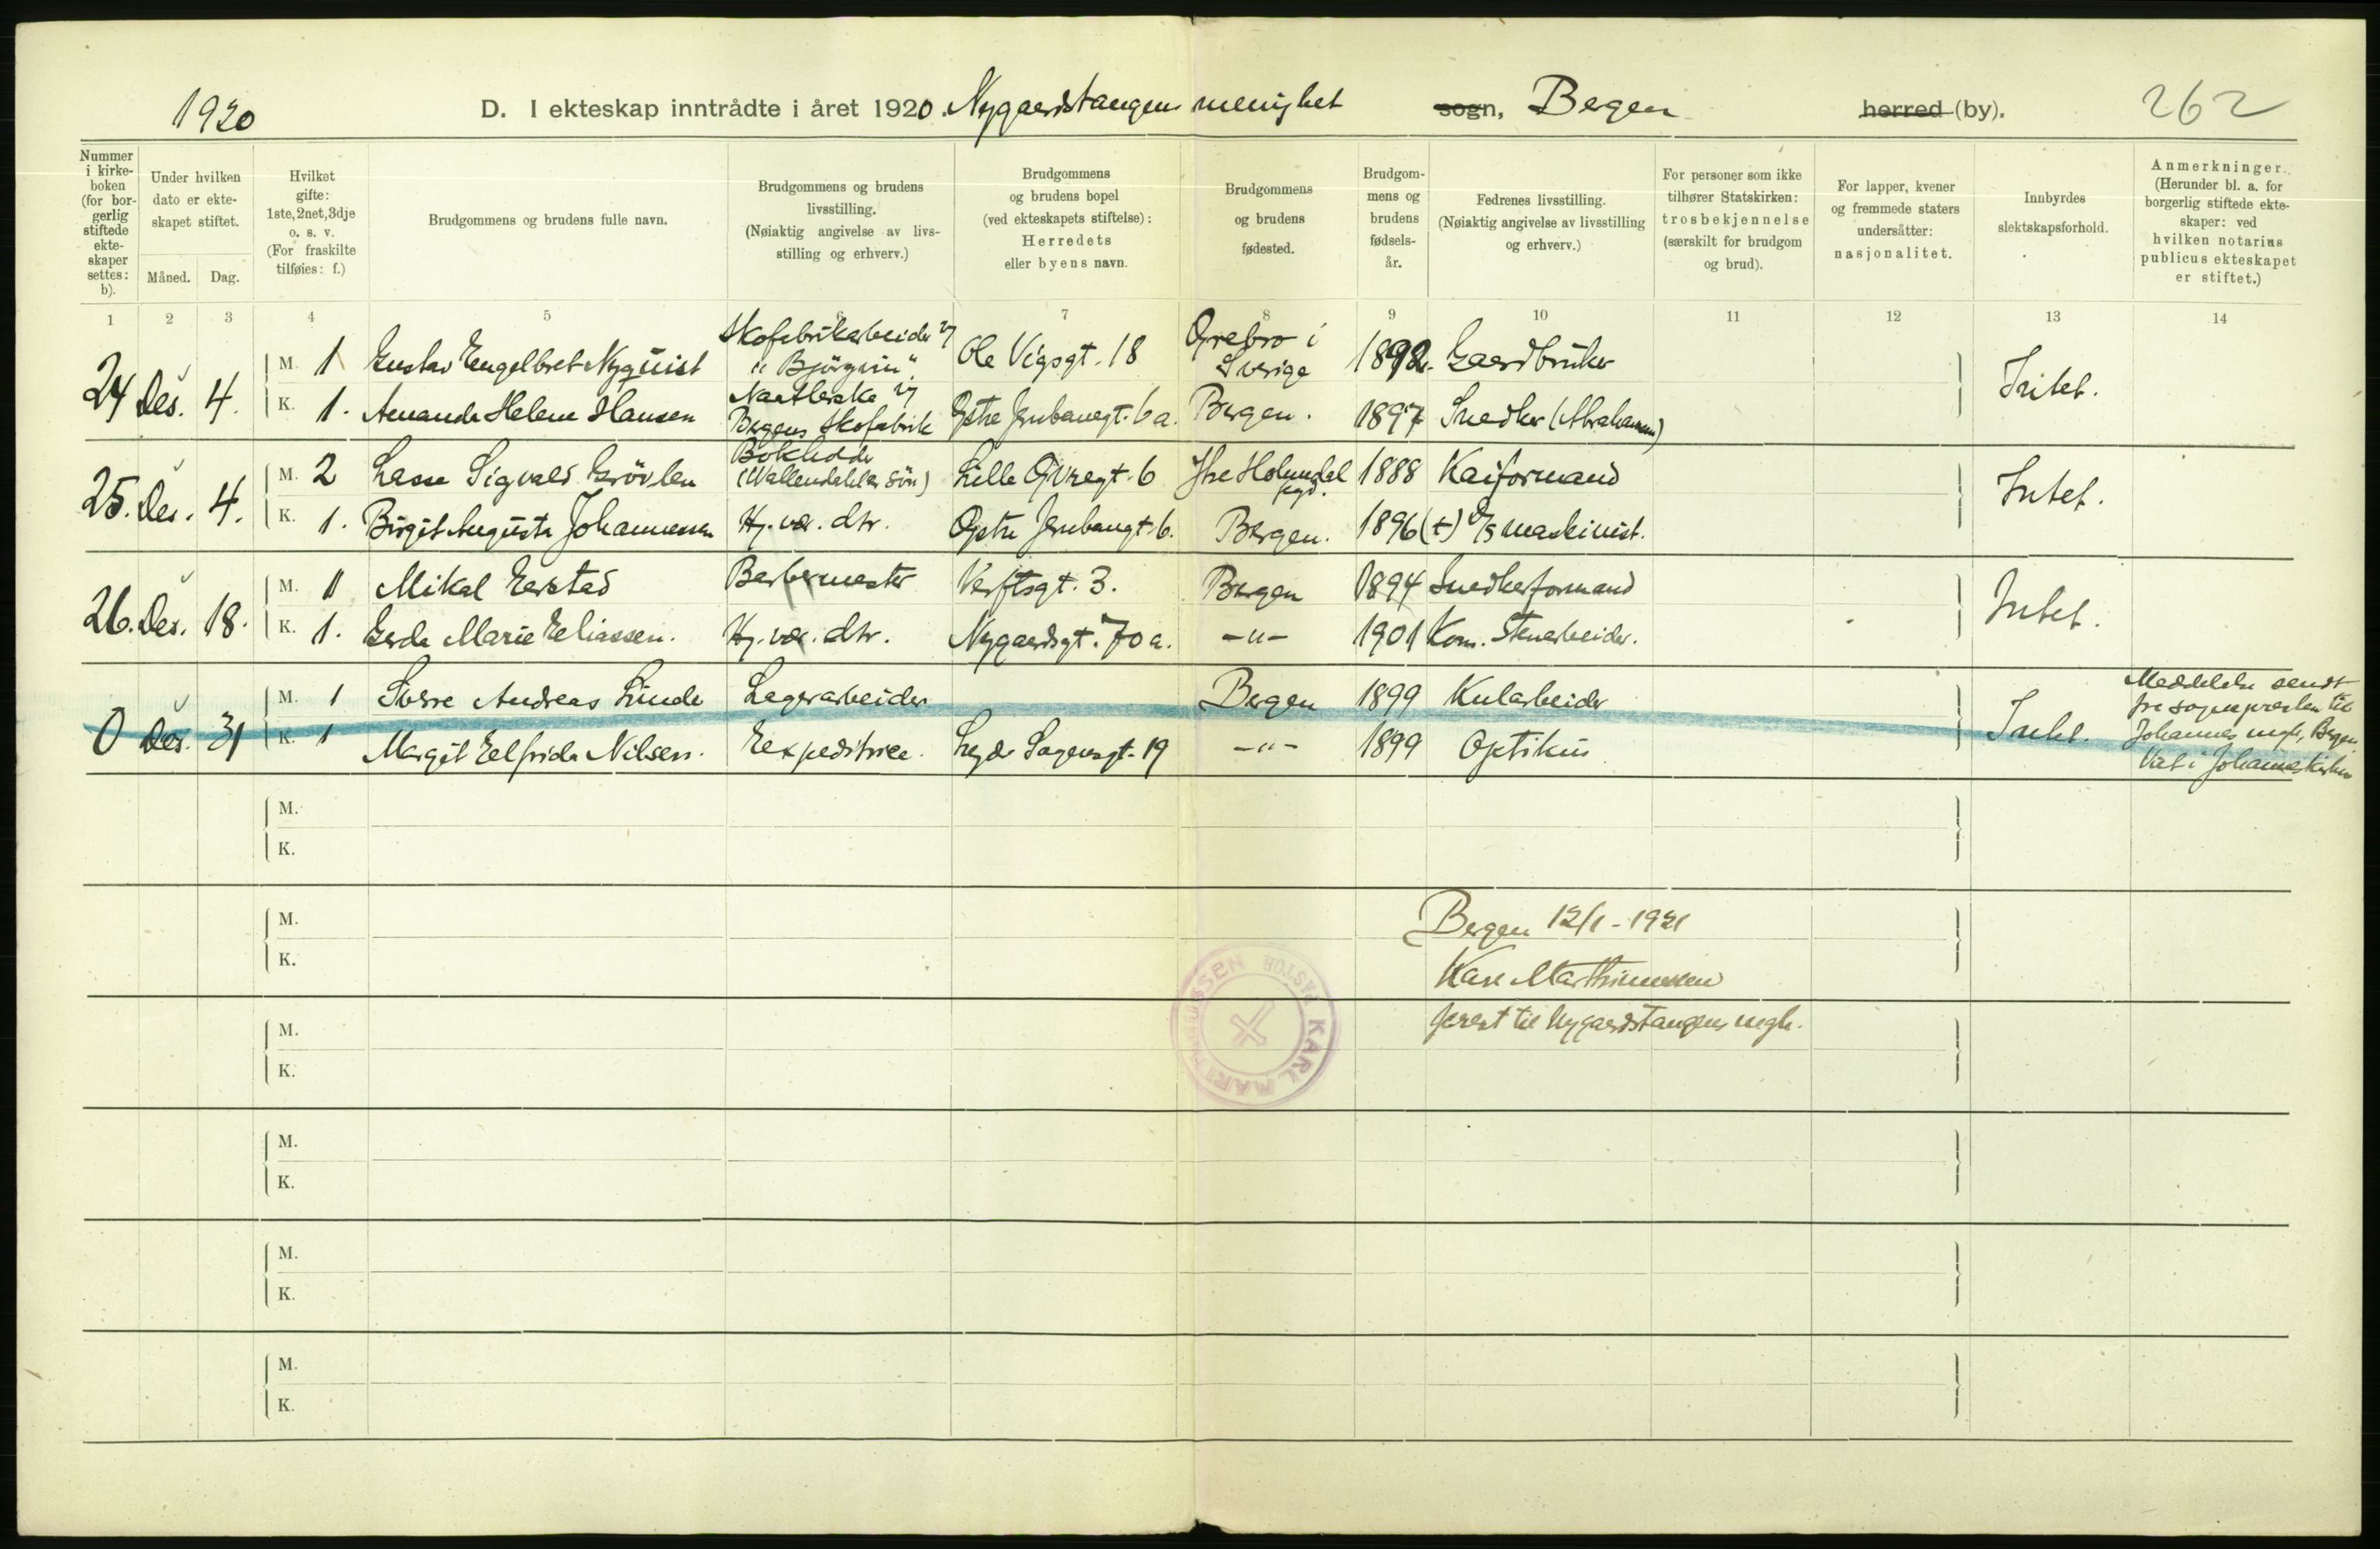 1920 D. I ekteskap inntrådte i året 1920. Nygaardstangens menighet sogn, Bergen herred (by). 262
Nummer i kirkeboken (for borgerlig stiftede ekteskaper settes: b).
Under hvilken dato er ekteskapet stiftet.
Måned. Dag.
Hvilket gifte: 1ste, 2net, 3dje o. s. v. (For fraskilte tilføies: f.)
Brudgommens og brudens fulle navn.
Brudgommens og brudens livsstilling. (Nøiaktig angivelse av livsstilling og erhverv.)
Brudgommens og brudens bopel (ved ekteskapets stiftelse): Herredets eller byens navn.
Brudgommens og brudens fødested.
Brudgommens og brudens fødselsår.
Fedrenes livsstilling. (Nøiaktig angivelse av livsstilling og erhverv.)
For personer som ikke tilhører Statskirken: trosbekjennelse (særskilt for brudgom og brud).
For lapper, kvener og fremmede staters undersåtter: nasjonalitet.
Innbyrdes slektskapsforhold.
Anmerkninger. (Herunder bl. a. for borgerlig stiftede ekteskaper: ved hvilken notarius publicus ekteskapet er stiftet.)
1 2 3 4 5 6 7 8 9 10 11 12 13 14
24 Des. 4.
M. 1 Gustav Engelbret Nyquist Skofabrikarbeider v/ "Björgvin". Ole Vigsgt. 18 Örebro i Sverige 1892. Gaardbruker
K. 1. Amanda Helene Hansen Naatlerske v/ Bergens Skofabrik Östre Jernbanegt. 6a. Bergen. 1897 Snedker (Abrahamsen)
Intet.
25. Des. 4.
M. 2 Lasse Sigvald Grövlen (Wallendahl & sön) Lille Övregt. 6 1888 Kaiformand
K. 1. Birgit Augusta Johannessen Hj. vær. dtr. Östre Jernbanegt. 6. Bergen. 1896 (†) D/S maskinist.
Intet.
26. Des. 18.
M. 1 Mikal Erstad Barbermester Verftsgt. 3. Bergen 1894 Snedkerformand
K. 1. Gerda Marie Eliassen. Hj. vær. dtr. Nygaardsgt. 70a. -"- 1901 Kom. Stenarbeider.
Intet.
0 Des. 31
M. 1 Sverre Andreas Lunde Lagerarbeider Bergen 1899 Kularbeider
K. 1 Margit Elfrida Nilsen. Expeditrice. Legde Sagensgt. 19 -"- 1899 Optikus
Intet.
Meddelelse sendt
fra sognepresten til
Johannes mgh., Bergen.
Viet i Johanneskirken
M.
K.
M.
K.
Bergen 12/1 - 1921
Karl Marthinussen
prest til Nygaardstangens mgh.
PASTOR KARL MARTHINUSSEN
M.
K.
M.
K.
M.
K.
M.
K.